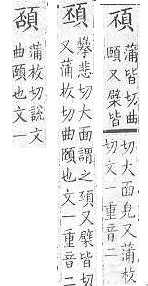 蒲皆切曲
頤又皆
切大面皃又蒲枚
切文一重音二
攀悲切大面謂之又皆切
又蒲枚切曲頤也文一重音二
蒲枚切說文
曲頤也文一